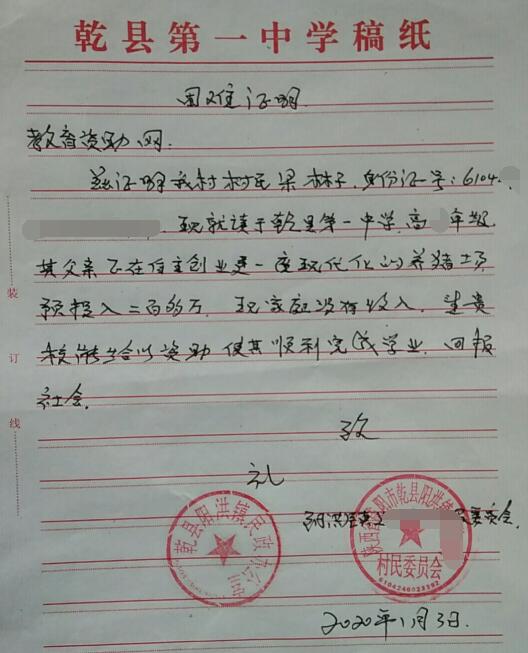 乾县第一中学稿纸
困难证明
教育资助网.
兹证明我村村民梁林子,身份证号:6104
现就读于乾县第一中学,高 年级,
其父亲正在自主创业建一座现代化的养猪场,
预投入二百多万,现家庭没有收入,望贵
校能给以资助使其顺利完成学业,回报
社会.
致
礼
装
订
线
乾县阳洪镇民政办公室
陕西省咸阳市乾县阳洪镇
村民委员会
委员会
2020年11月3日.